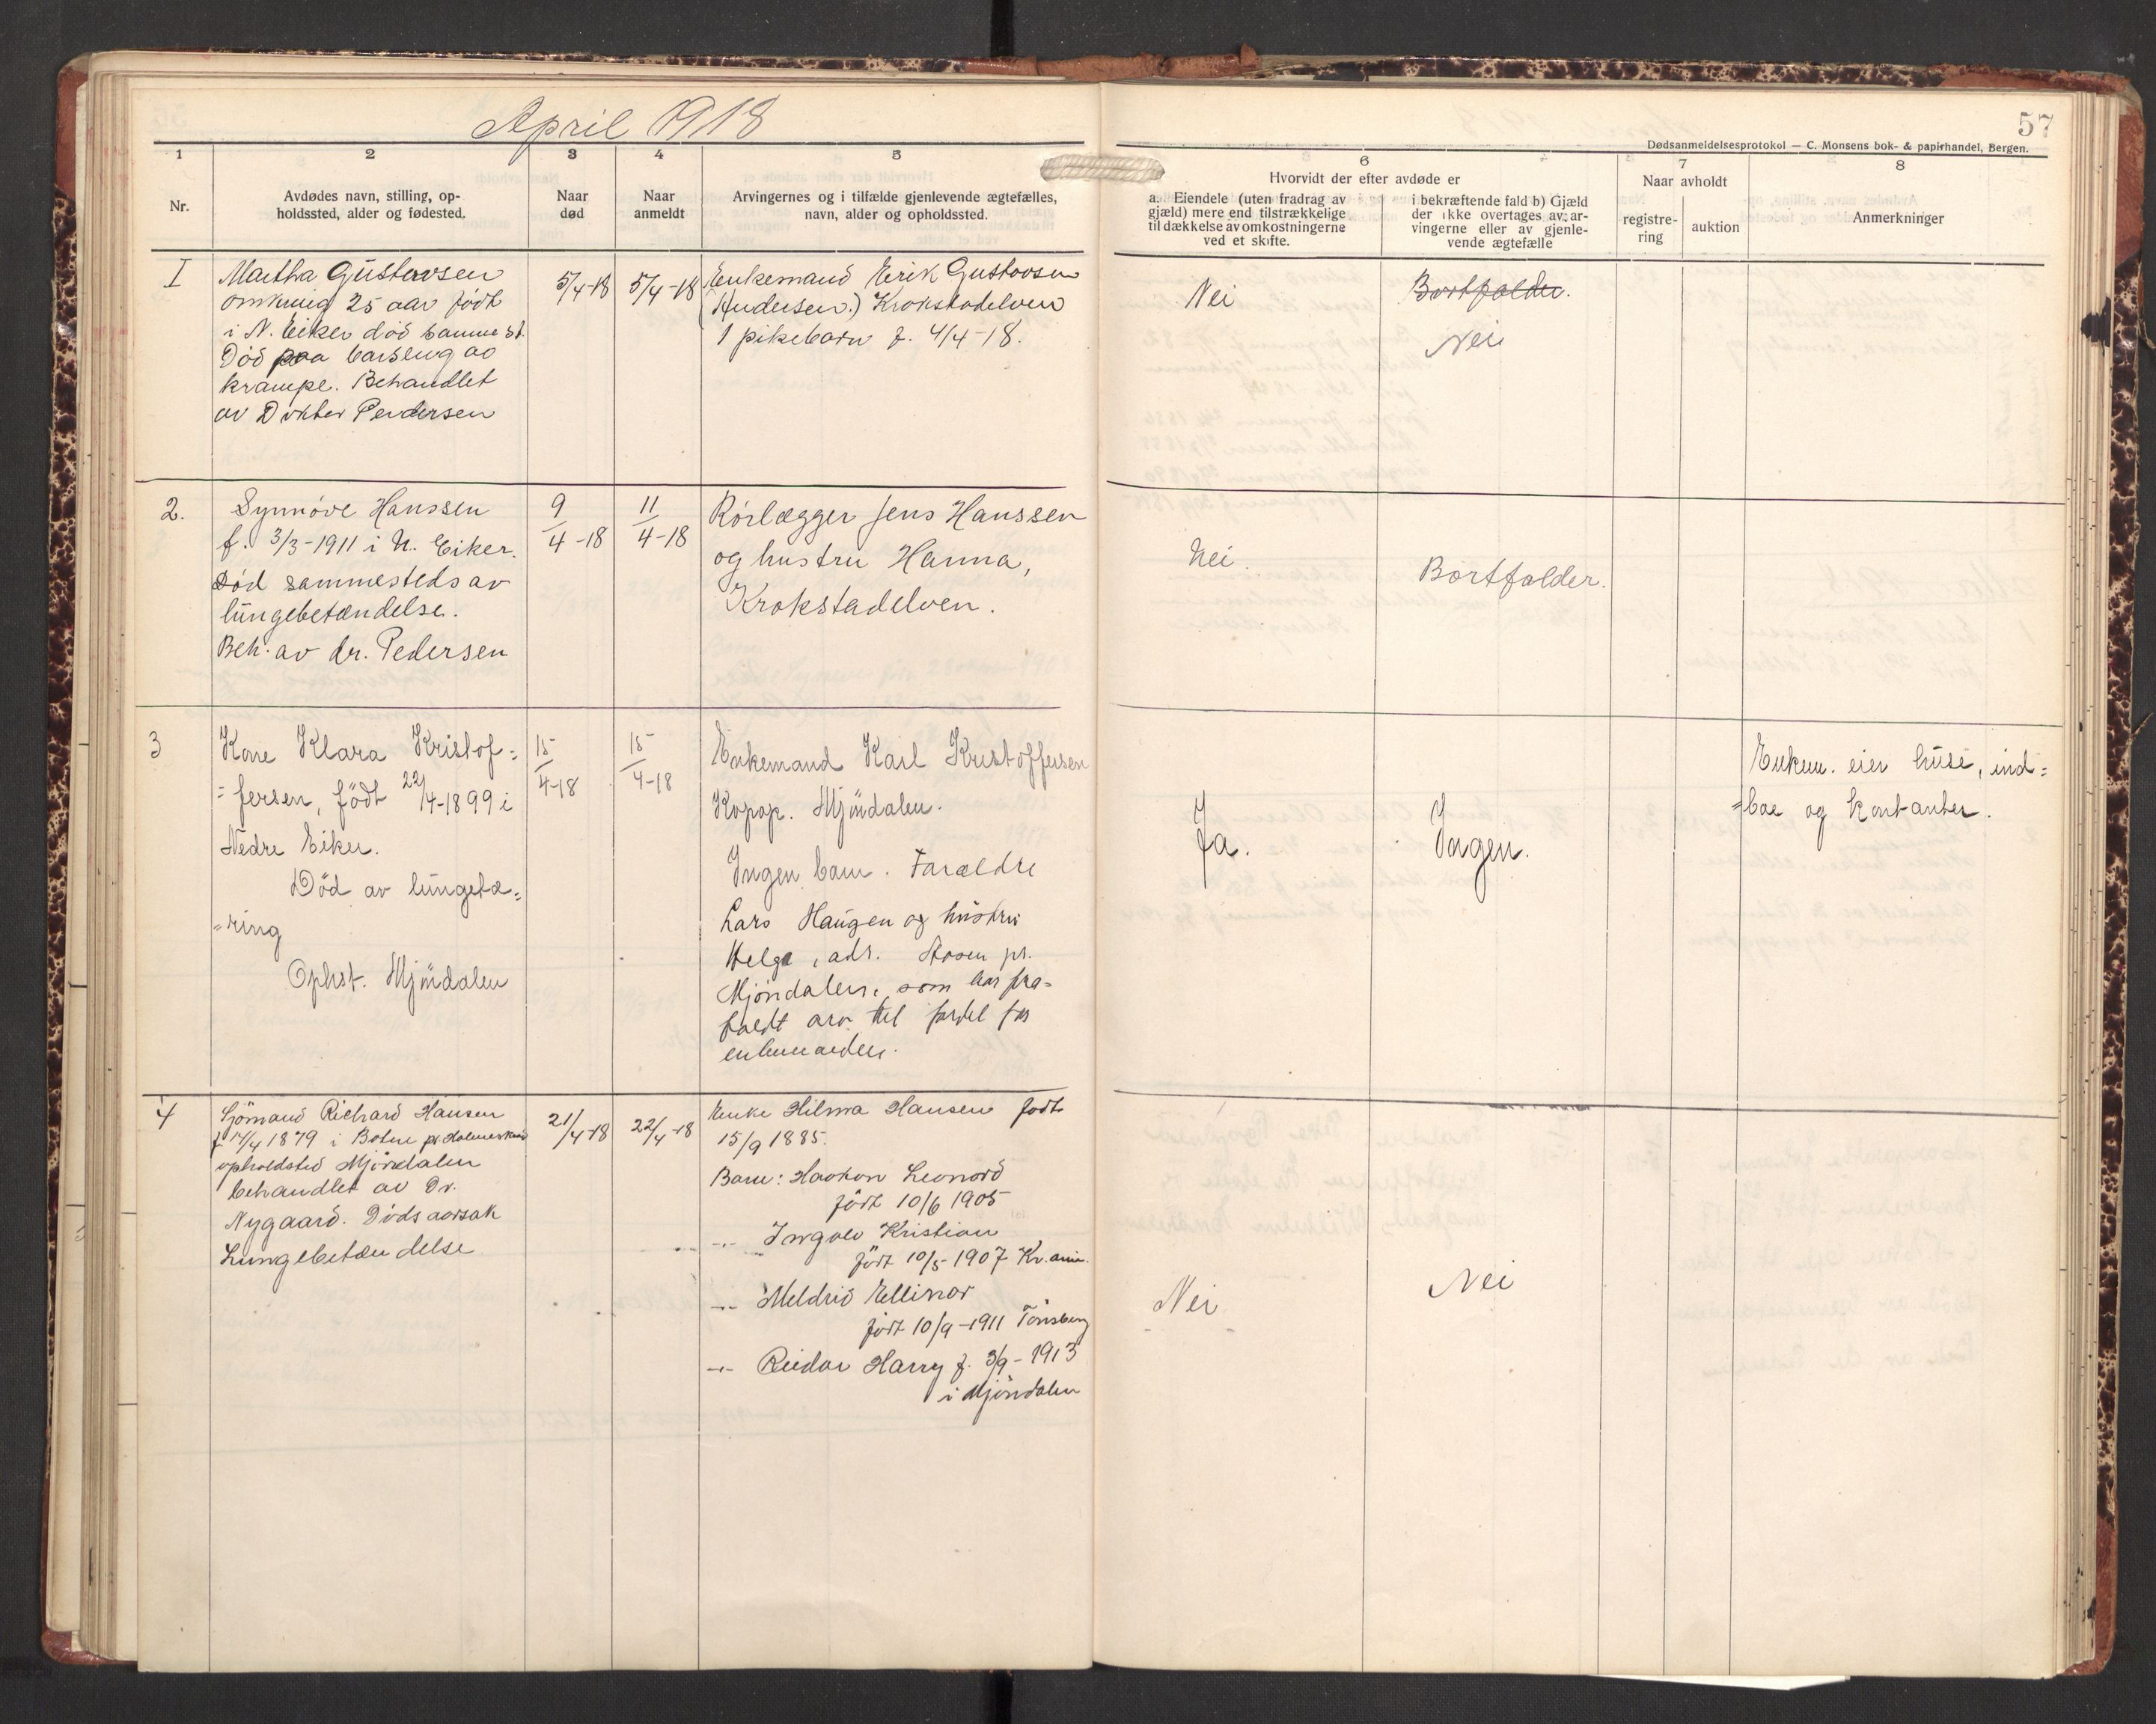 April 1918
57
Dødsanmeldelsesprotokol — C. Monsens bok- & papirhandel, Bergen.
1
2
3
4
5
6
7
8
Nr.
Avdødes navn, stilling, op-
holdssted, alder og fødested.
Naar
død
Naar
anmeldt
Arvingernes og i tilfælde gjenlevende ægtefælles,
navn, alder og opholdssted.
Hvorvidt der efter avdøde er
a. Eiendele (uten fradrag av
gjæld) mere end tilstrækkelige
til dækkelse av omkostningerne
ved et skifte.
i bekræftende fald b) Gjæld
der ikke overtages av ar-
vingerne eller av gjenle-
vende ægtefælle
Naar avholdt
registre-
ring
auktion
Anmerkninger
I
Martha Gustavsen
omkring 25 aar født
i N. Eiker død samme st.
Død paa barseng av
krampe. Behandlet
av Dokter Pedersen
5/4-18
5/4-18
Enkemand Erik Gustavsen
(Andersen.) Krokstadelven
1 pikebarn f. 4/4-18.
Nei
Bortfalder.
Nei
2.
Synnøve Hanssen
f. 3/3-1911 i N. Eiker.
Død sammesteds av
lungebetændelse.
Beh. av dr. Pedersen
9/4-18
11/4-18
Rørlægger Jens Hanssen
og hustru Hanna,
Krokstadelven.
Nei.
Bortfalder.
3
Kone Klara Kristof=
=fersen, født 22/4-1899 i
Nedre Eiker.
Død av lungetæ=
=ring
Ophst. Mjøndalen
15/4-18
15/4-18
Enkemand Karl Kristoffersen
Mjøndalen.
Ingen barn. Forældre
Lars Haugen og hustru
Helga, adr. Aasen pr.
Mjøndalen, som har fra=
faldt arv til fordel for
enkemanden.
Ja.
Ingen.
Enkem. eier huse, ind=
=bo og kontanter.
4
Sjømand Richard Hansen
f. 14/4 1879 i Botne pr. Holmestrand
opholdsted Mjøndalen
behandlet av Dr.
Nygaard. Dødsaarsak
Lungebetændelse
21/4-18
22/4-18
Enke Hilma Hansen født
15/9 1885.
Barn: Haakon Leonard
født 10/6 1905
-"- Ingolv Kristian
født 10/5 1907 Kr.ania.
-"- Meldrid Ellinor
født 10/9-1911 Tønsberg
-"- Reidar Harry f. 3/9-1913
i Mjøndalen
Nei
Nei